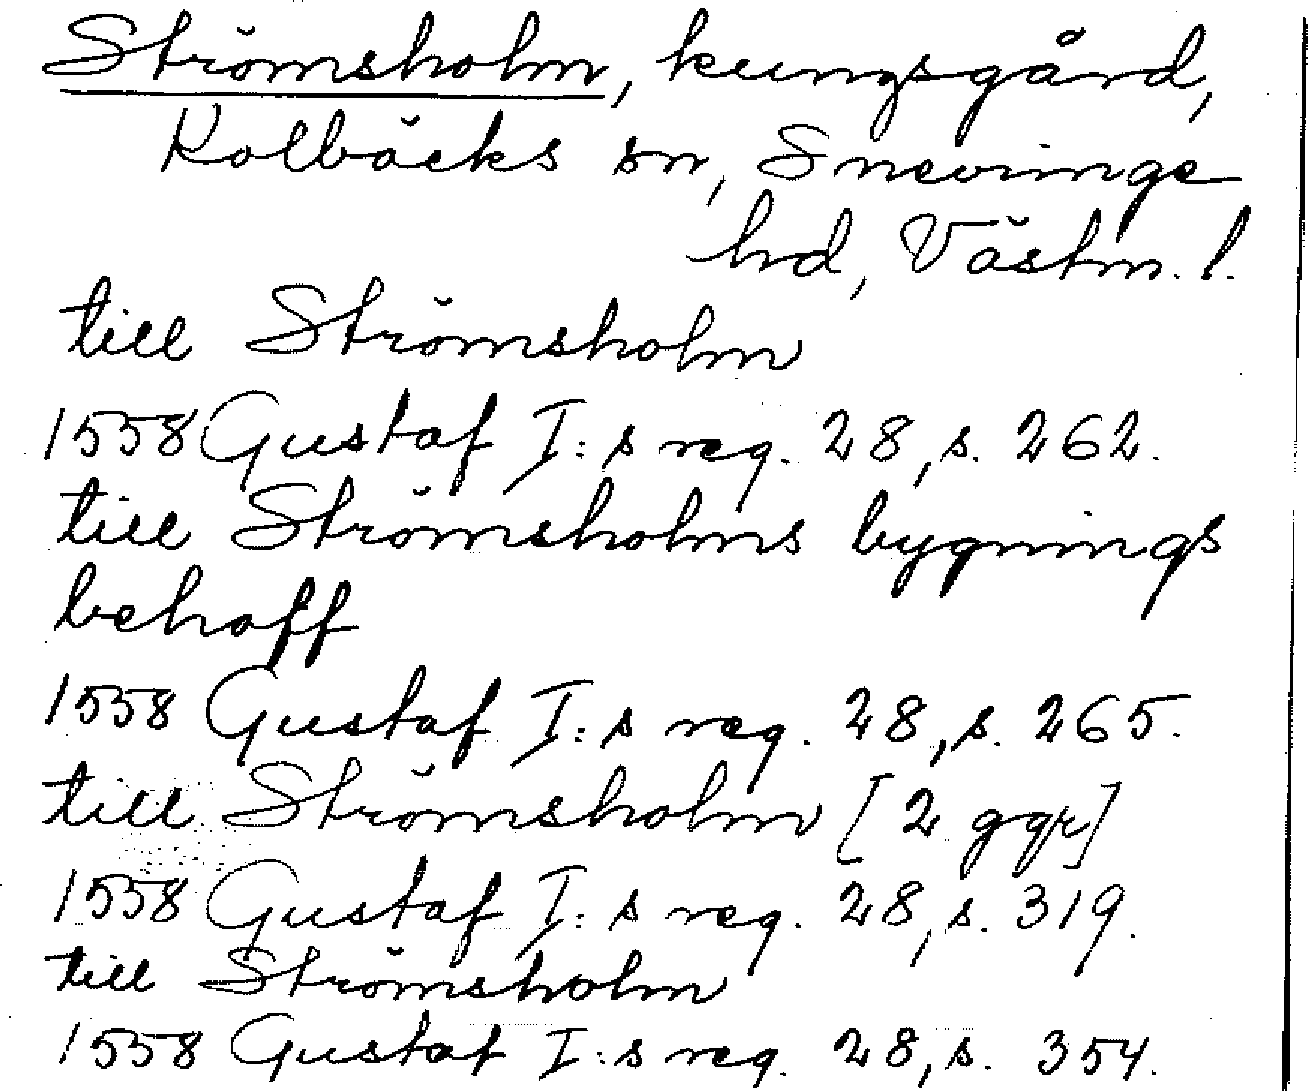 Strömsholm, kungsgård,
Kolbäcks sn, Snevringe
hd, Västm. l.
till Strömsholm
1558 Gustaf I:s reg. 28, s. 262.
till Strömsholms bygnings
behoff
1558 Gustaf I:s reg. 28, s. 265.
till Strömsholm [2 ggr]
1558 Gustaf I:s reg. 28, s. 319.
till Strömsholm
1558 Gustaf I:s reg. 28, s. 354.